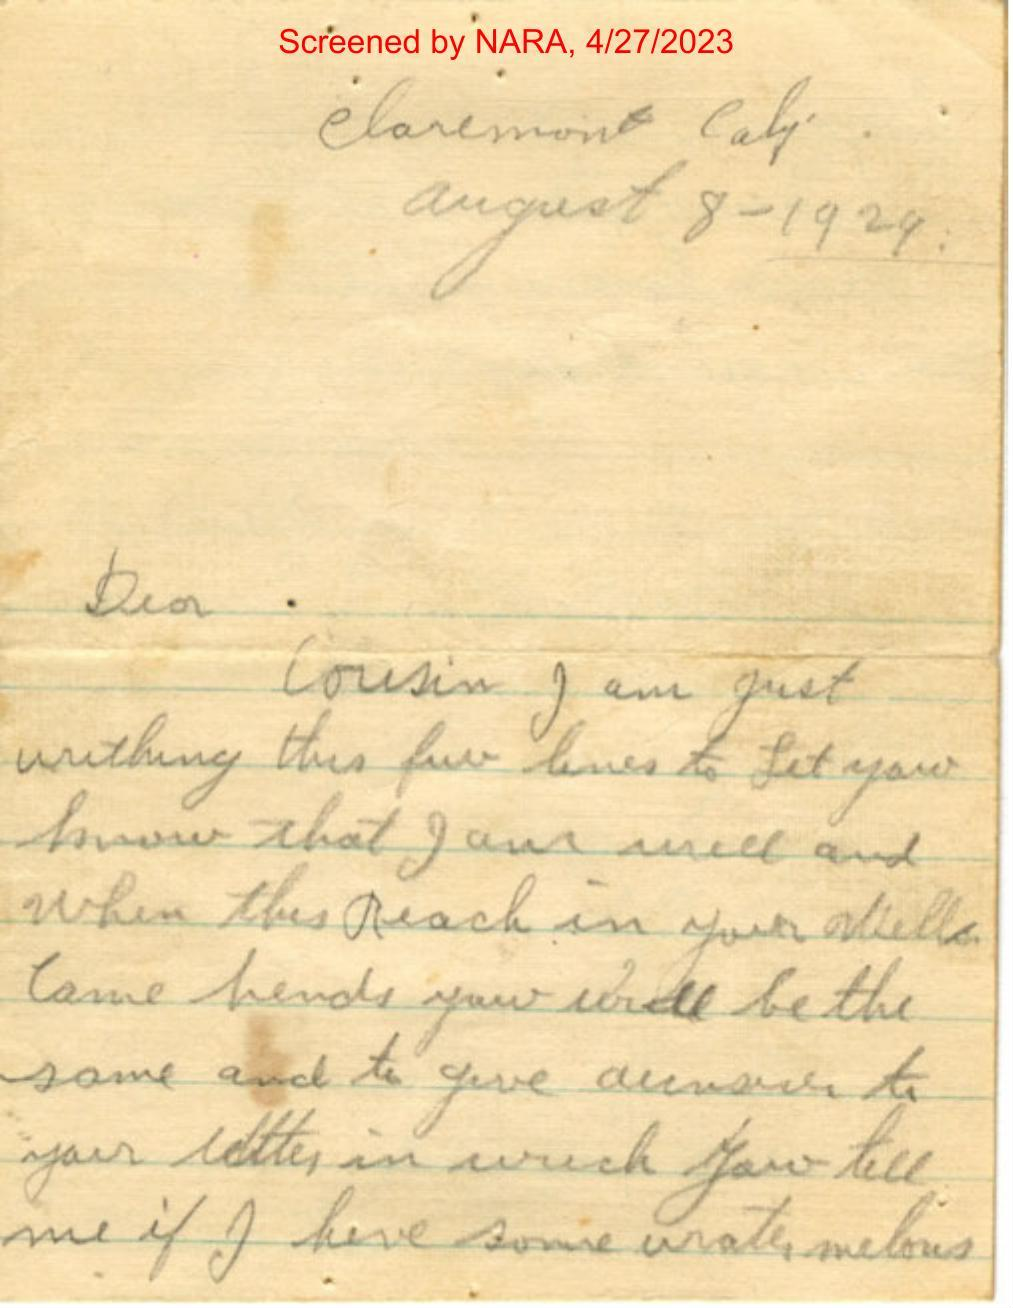 Screened by NARA, 4/27/2023
Claremont Calif
August 8-1929.
Dear
Cousin I am just
writhing this few lines to Let yow
know that I am well and
When this Reach in your Wella
Came hends yow will be the
same and to give aunswer to
your letter in wich Yow tell
me if I heve some water melons